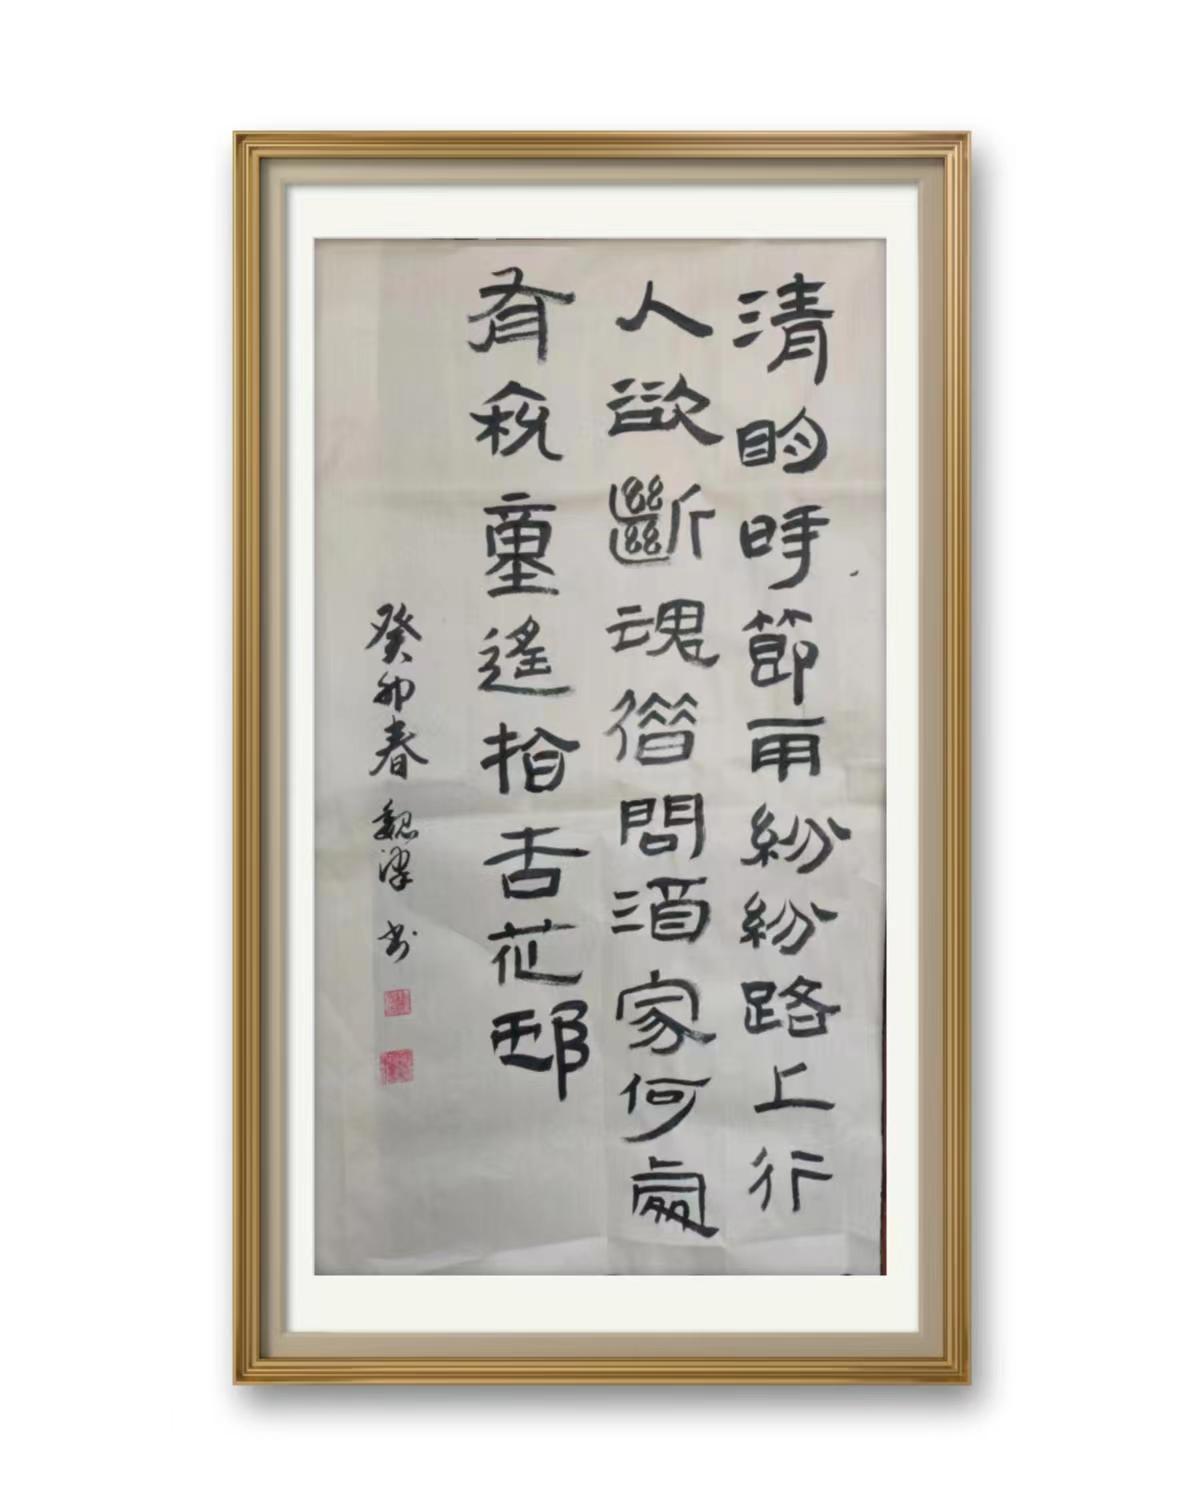 清眀時節雨紛紛路上行
人欲斷魂借問酒家何處
有牧童遙指杏花邨
癸卯春 魏津书